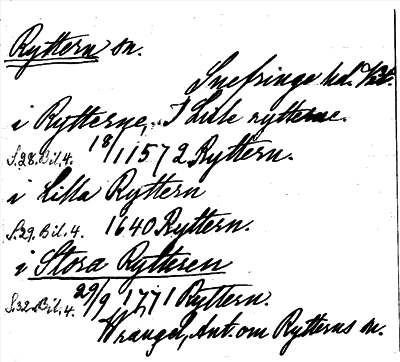 Ryttern sn.
Snefringe hd.
i Rytterne, I Lille rytterne.
S.28. Bil. 4. 18/1 1572 Ryttern.
i Lilla Ryttern
S.29. Bil. 4. 1640 Ryttern.
i Stora Ryttern
S.32. Bil. 4. 29/9 1771 Ryttern.
Wrangel, Ant. om Rytterns sn.